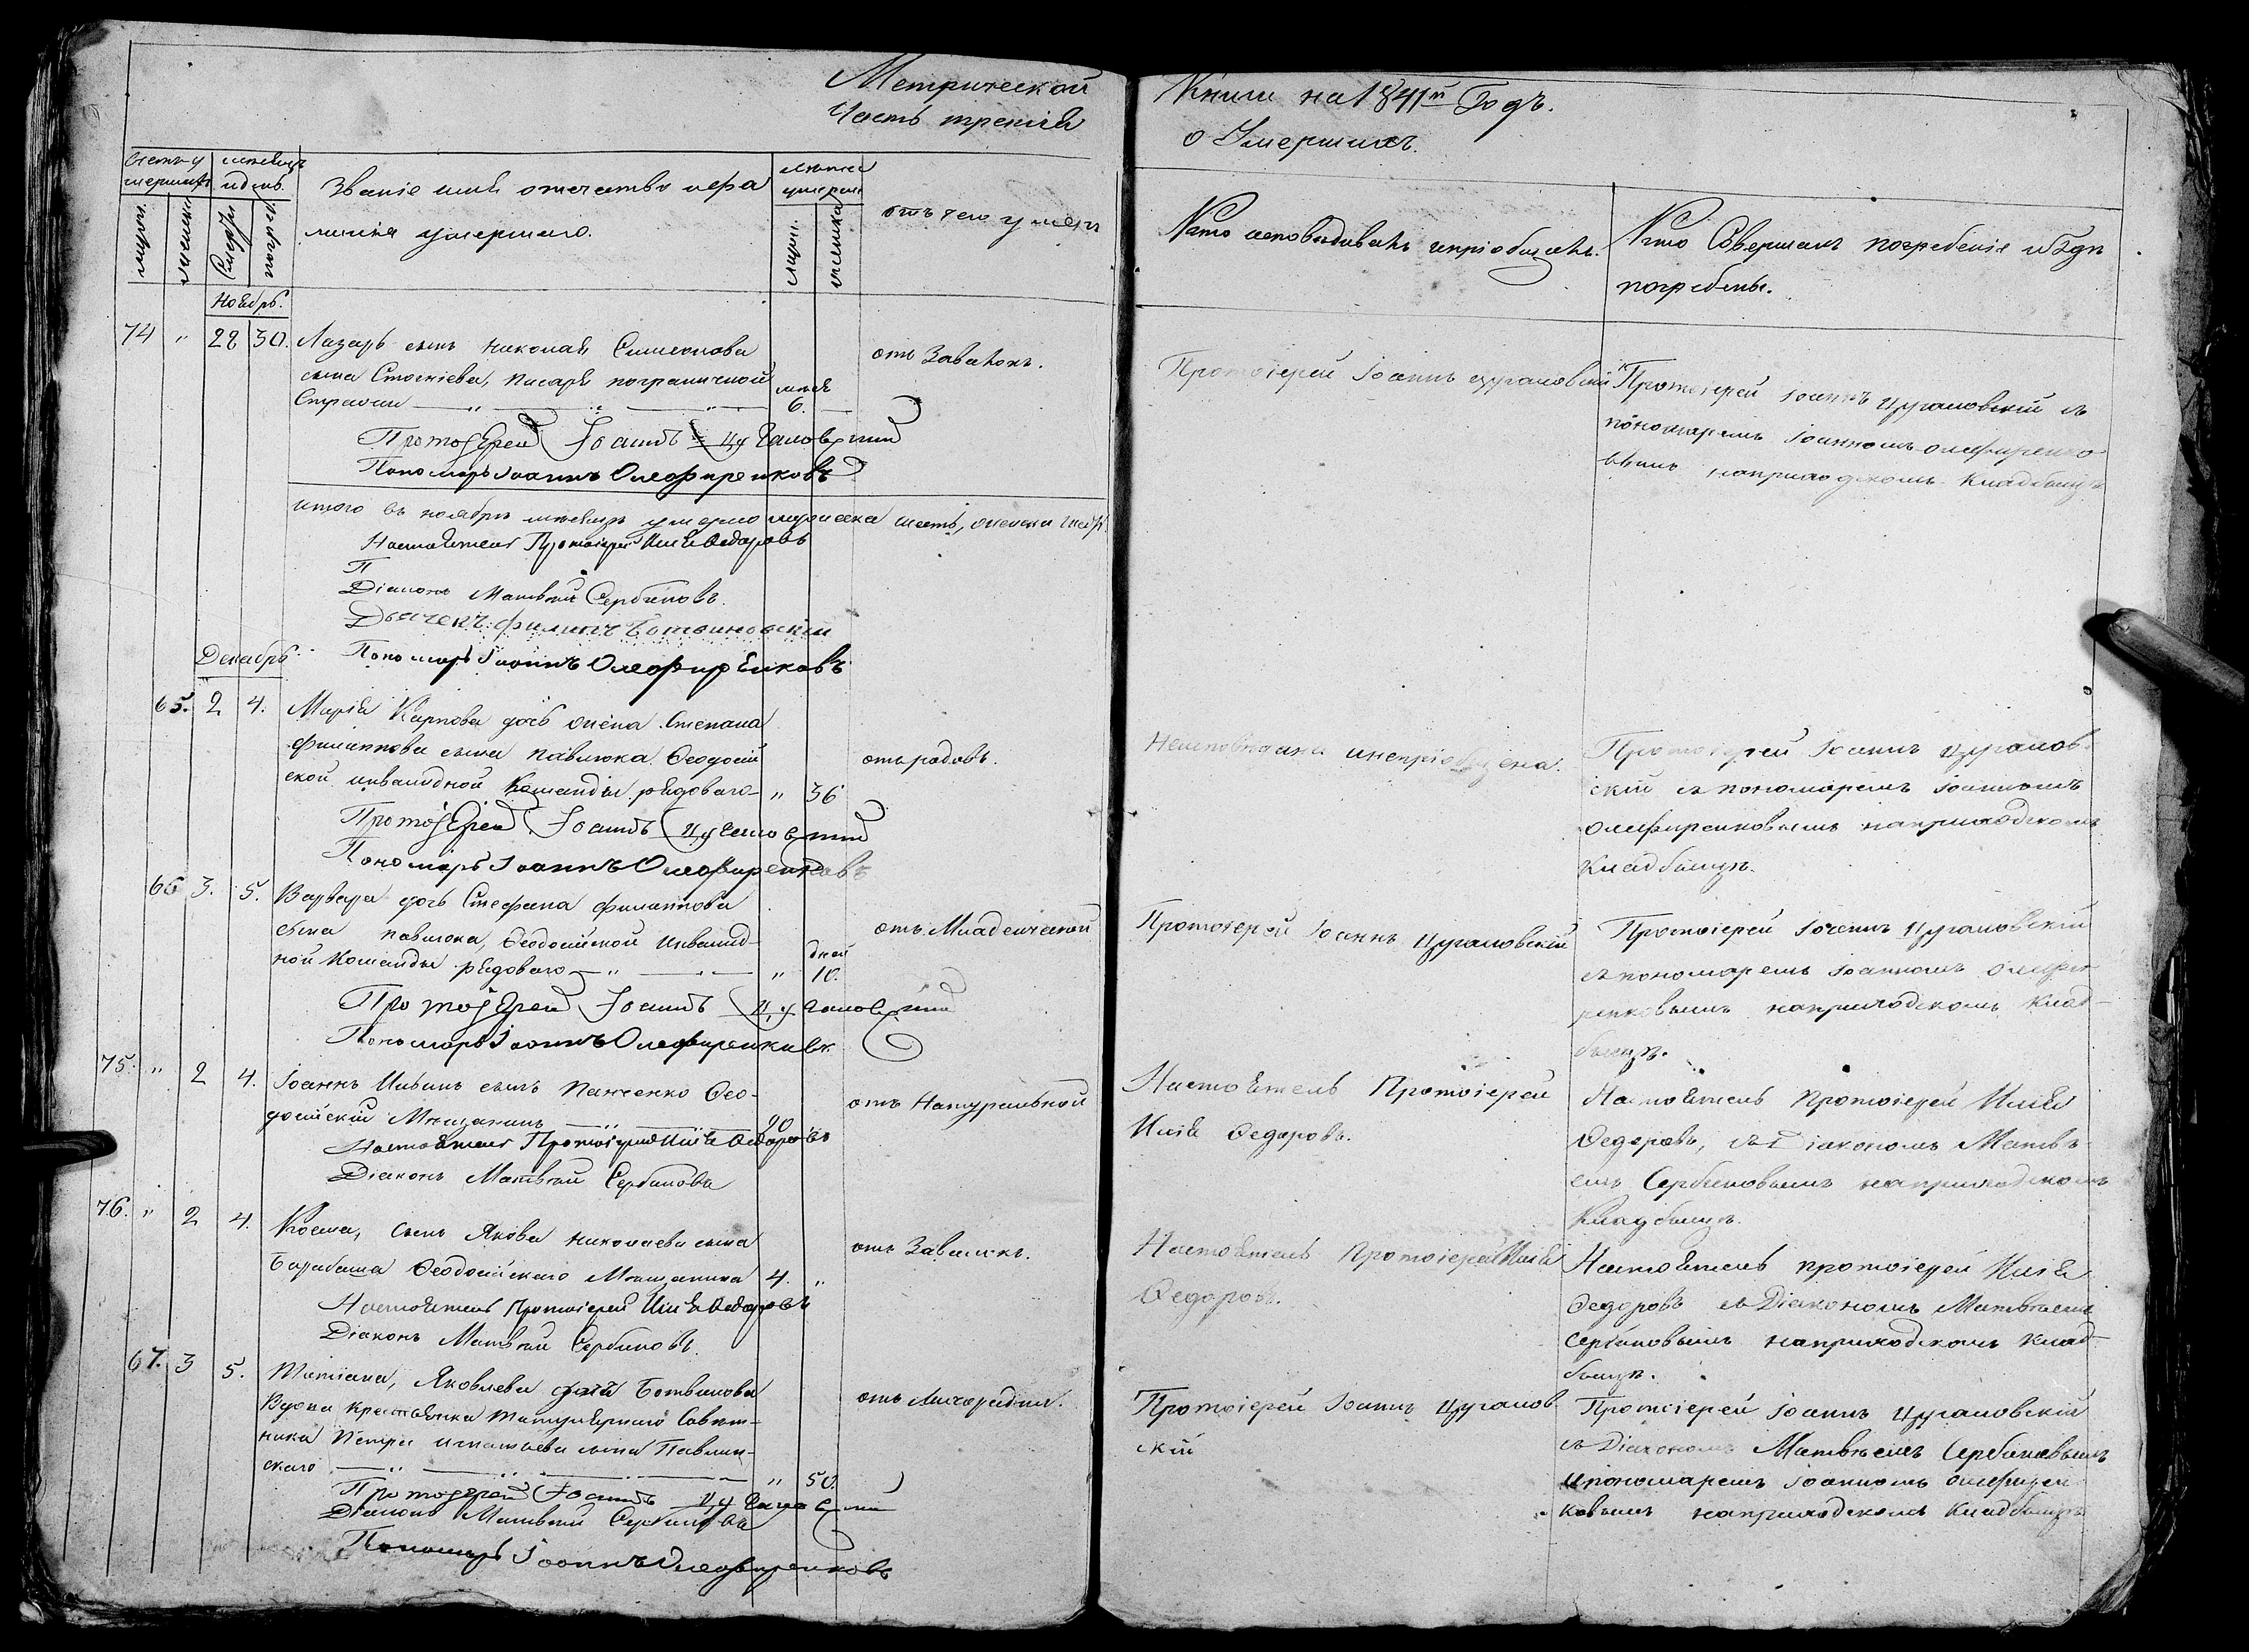 Метрической
Часть третія
Книги на 1841й Годъ.
о Умершихъ.
Званіе имя отечество и фа
милія умершаго.
отъ чего умеръ
Кто исповѣдывалъ и пріобщалъ.
Кто Совершалъ погребеніе и Гдѣ
погребены.
Ноябрь.
74 " 28 30. Лазарь сынъ Николая Симеонова
сына Стогніева, писаря пограничной
Стражи 6.
отъ Завалокъ.
Протоіерей Іоаннъ Цугаловскій
Пономарь Іоаннъ Олефиренковъ
Протоіерей Іоаннъ Цугаловскій
Протоіерей Іоаннъ Цугаловскій съ
пономаремъ Іоанномъ Олефиренко
вымъ на приходскомъ Кладбищѣ
итого въ ноябрѣ мѣсяцѣ умерло мужеска шесть, женска
Настоятель Протоіерей Илія Федоровъ
П
Діаконъ Матвѣй Сербиновъ.
Дьячекъ Филипъ Ботвиновскій
Пономарь Іоаннъ Олефиренковъ
Декабрь
65. 2 4. Марія Карпова дочь жена Степана
филиппова сына Павлюка Ѳеодосій
ской инвалидной Команды рядоваго " 36
отъ родовъ.
Протоіерей Іоаннъ Цугаловскій
Пономарь Іоаннъ Олефиренковъ
Неисповѣдана и непріобщена.
Протоіерей Іоаннъ Цугалов
скій съ пономаремъ Іоанномъ
Олефиренковымъ на приходскомъ
Кладбищѣ.
66 3. 5. Варвара дочь Стефана филиппова
сына Павлюка, Ѳеодосійской Инвалид-
ной Команды рядоваго " дней 10.
отъ Младенческой
Протоіерей Іоаннъ Цугаловскій
Пономарь Іоаннъ Олефиренковъ
Протоіерей Іоаннъ Цугаловскій
Протоіерей Іоаннъ Цугаловскій
съ пономаремъ Іоанномъ Олефи
ренковымъ на приходскомъ Клад-
бищѣ.
75. " 2 4. Іоаннъ Ильинъ сынъ Панченко Ѳео-
досійскій Мѣщанинъ 90
отъ Натуральной
Настоятель Протоіерей Илія Федоровъ
Діаконъ Матвѣй Сербиновъ
Настоятель Протоіерей
Илія Федоровъ.
Настоятель Протоіерей Илія
Федоровъ, съ Діакономъ Матвѣ
емъ Сербиновымъ на приходскомъ
Кладбищѣ.
76. " 2 4. Косма, сынъ Якова Николаева сына
Барабаша Ѳеодосійскаго Мѣщанина 4. "
отъ Завалокъ.
Настоятель Протоіерей Илія Федоровъ
Діаконъ Матвѣй Сербиновъ.
Настоятель Протоіерей Илія
Федоровъ.
Настоятель Протоіерей Илія
Федоровъ съ Діакономъ Матвѣемъ
Сербиновымъ на приходскомъ Клад-
бищѣ.
67. 3 5. Татіана, Яковлева дочь Ботвинова
Вдова крестьянка Титулярнаго Совѣт-
ника Петра Игнатьева сына Павлин-
скаго " 50.
отъ Лихорадки.
Протоіерей Іоаннъ Цугаловскій
Діаконъ Матвѣй Сербиновъ
Пономарь Іоаннъ Олефиренковъ
Протоіерей Іоаннъ Цугалов
скій
Протоіерей Іоаннъ Цугаловскій
съ Діакономъ Матвѣемъ Сербиновымъ
и пономаремъ Іоанномъ Олефирен
ковымъ на приходскомъ Кладбищѣ